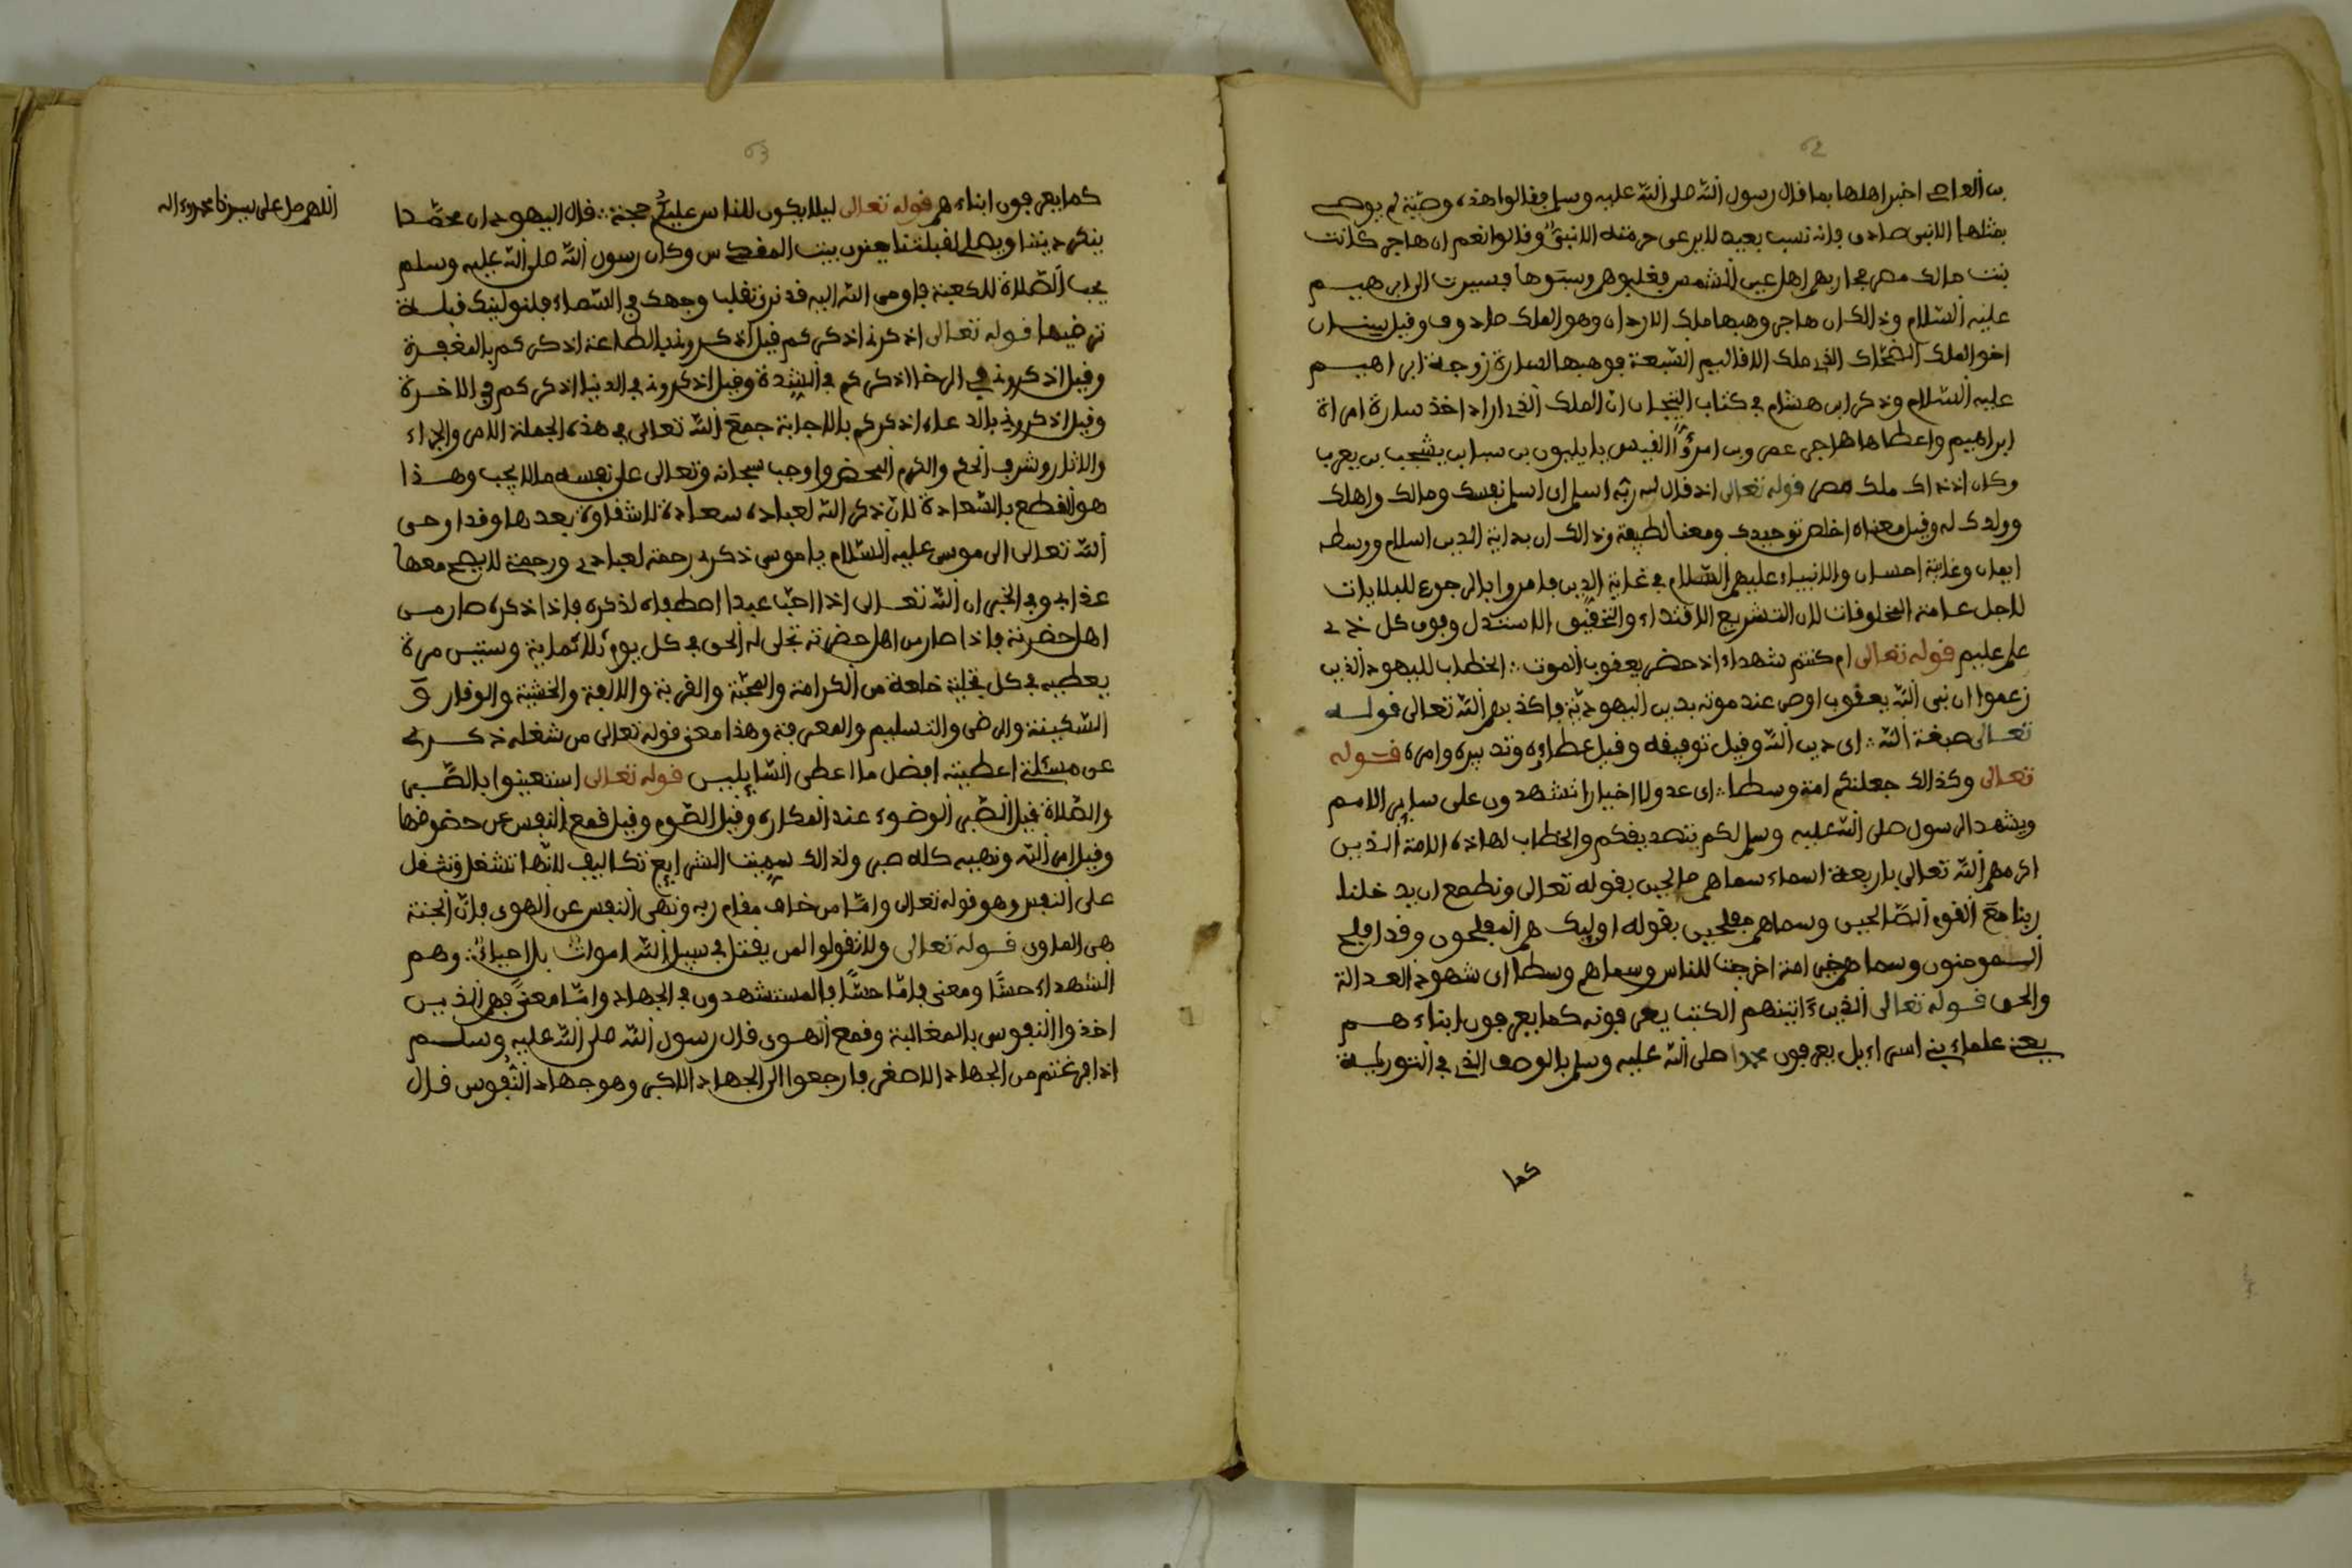 62
بن العاصى اخبر اهلها بما قال رسول الله صلى الله عليه وسلم فقالوا هذه وصية لم يوص
بمثلها الا نبى صادق فانه نسب بعيد لا يرعى حرمته الا نبىّ وقالوا نعم ان هاجر كانت
بنت مالك مصر فحاربهم اهل عين الشمس فغلبوهم وسبّوها فسيرت الى ابرهيم
عليه السّلام وذالك ان هاجر وهبها ملك الاردان وهو الملك صادوف وقيل سنان
اخو الملك الضحّاك الذى ملك الاقاليم السّبعة فوهبها لسارة زوجة ابراهيم
عليه السّلام وذكر ابن هشام فى كتاب التيجان ان الملك الذى اراد اخذ سارة امراة
ابراهيم واعطاها هاجر عمرو بن امرؤ القيس بابليون بن سبا بن يشجب بن يعرب
وكان اذ ذاك ملك مصر قوله تعالى اذ قال له ربّه اسلم اى اسلم نفسك ومالك واهلك
وولدك له وقيل معناه اخلص توحيدك ومعنا لطيفة وذالك ان بداية الدين اسلام ووسطه
ايمان وغاية احسان والانبياء عليهم السّلام فى غاية الدين فامروا بالرجوع للبدايات
لاجل عامة المخلوقات لان التشريع الاقتداء والتحقيق الاستدل وفوق كل ذى
علم عليم قوله تعالى ام كنتم شهداء اذ حضر يعقوب الموت ؞ الخطاب لليهود الذين
زعموا ان نبى الله يعقوب اوصى عند موته بدين اليهوديّة فاكذبهم الله تعالى قوله
تعالى صبغة الله ؞ اى دين الله وقيل توفيقه وقيل عطاؤه وتدبيره وامره قوله
تعالى وكذالك جعلنكم امة وسطا ؞ اى عدولا اخيارا تشهدون على ساير الامم
ويشهد الرسول صلى الله عليه وسلم لكم بتصديقكم والخطاب لهاذه الامة الذين
اكرمهم الله تعالى باربعة اسماء سماهم صالحين بقوله تعالى ونطمع ان يدخلنا
ربنا مع القوم الصّالحين وسماهم مفلحين بقوله اوليك هم المفلحون وقد افلح
المومنون وسماهم خير امة اخرجت للناس وسماهم وسطا اى شهود العدالة
والحق قوله تعالى الذين ءاتينهم الكتب يعرفونه كما يعرفون ابناءهم
يعنى علماء بنى اسراءيل يعرفون محمدا صلى الله عليه وسلم بالوصف الذى فى التورية
كما
63
كما يعرفون ابناءهم قوله تعالى ليلا يكون للناس عليكم حجة ؞ قال اليهود ان محمّدا
ينكر ديننا ويصلى لقبلتنا يعنون بيت المقدس وكان رسول الله صلى الله عليه وسلم
يحب الصّلاة للكعبة فاوحى الله اليه قد نرى تقلب وجهك فى السّماء فلنولينك قبلة
ترضيها قوله تعالى اذكرونى اذكركم قيل اذكرونى بالطاعة اذكركم بالمغفرة
وقيل اذكرونى فى الرخا اذكركم فى الشّدة وقيل اذكرونى فى الدنيا اذكركم فى الاخرة
وقيل اذكرونى بالدعاء اذكركم بالاجابة جمع الله تعالى فى هذه الجملة الامر والجزاء
والاثار وشرف الحكم والكرم المحض واوجب سبحانه وتعالى على نفسه مالا يجب وهذا
هو القطع بالسّعادة لان ذكر الله لعباده سعادة لا شقاوة بعدها وقد اوحى
الله تعالى الى موسى عليه السّلام يا موسى ذكرى رحمة لعبادى ورحمة لا يصح معها
عذابى وفى الخبر ان الله تعالى اذا احبّ عبدا اصطفاه لذكره فاذا ذكره صار من
اهل حضرته فاذا صار من اهل حضرته تجلى له الحق فى كل يوم ثلاثماية وستين مرة
يعطيه فى كل تجلية خلعة من الكرامة والمحبّة والقربة والالفة والخشية والوقار و
السّكينة والرضى والتسليم والمعرفة وهذا معنى قوله تعالى من شغله ذكرى
عن مسئلتى اعطيته افضل ما اعطى السّايلين قوله تعالى استعينوا بالصّبر
والصّلاة قيل الصّبر الوضوء عند المكاره وقيل الصّوم وقيل قمع النفس عن حضوضها
وقيل امر الله ونهيه كله صبر ولذالك سمّيت الشرايع تكاليف لانّها تشغل وتثقل
على النفس وهو قوله تعالى وامّا من خاف مقام ربه ونهى النفس عن الهوى فانّ الجنة
هى الماوى قوله تعالى ولا تقولوا لمن يقتل فى سبيل الله اموات بل احياءٌ ؞ وهم
الشهداء حسّا ومعنى فامّا حسّا فالمستشهدون فى الجهاد وامّا معنىً فهم الذين
اخذوا النفوس بالمغالبة وقمع الهوى قال رسول الله صلى الله عليه وسلم
اذا فرغتم من الجهاد الاصغر فارجعوا الى الجهاد الاكبر وهو جهاد النّفوس قال
اللهم صل على سيدنا محمد وءاله